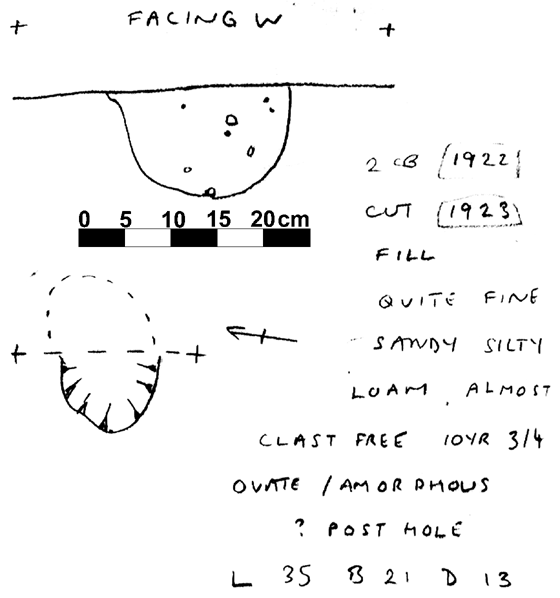 FACING W
0 5 10 15 20cm
2 CB (1922)
CUT [1923]
FILL
QUITE FINE
SANDY SILTY
LOAM, ALMOST
CLAST FREE 10YR 3/4
OVATE / AMORPHOUS
? POST HOLE
L 35 B 21 D 13